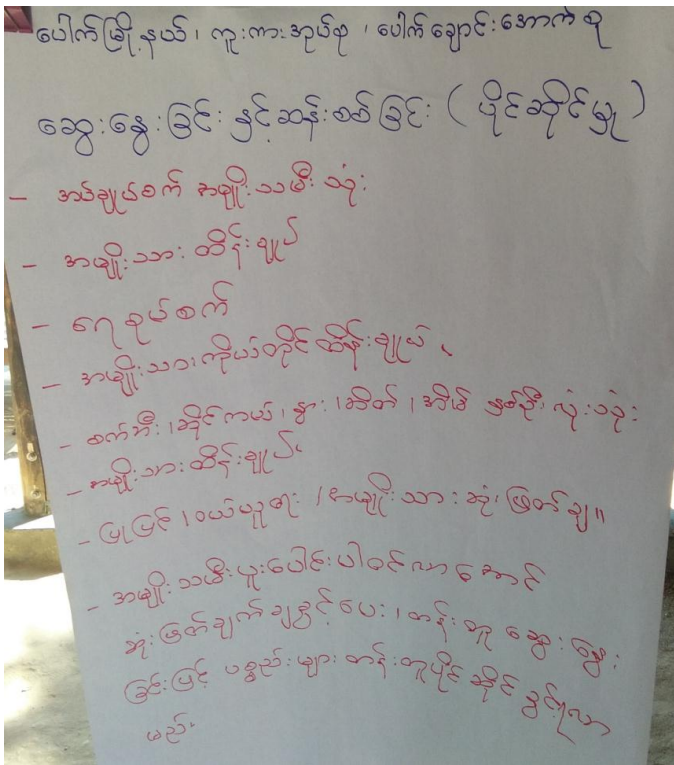 ပေါက်မြို့နယ်၊ ကူးကားအုပ်စု ၊ ပေါက်ချောင်းအောက်စု
ဆွေးနွေးခြင်းနှင့်ဆန်းစစ်ခြင်း (ပိုင်ဆိုင်မှု)
- အပ်ချုပ်စက် အမျိုးသမီးသုံး
- အမျိုးသား ထိန်းချုပ်
- ရေစုပ်စက်
- အမျိုးသားကိုယ်တိုင်ထိန်းချုပ်၊
- စက်ဘီး၊ဆိုင်ကယ်၊နွား၊ဆိတ်၊အိမ် နှစ်ဦးလုံးသုံး
- အမျိုးသားထိန်းချုပ်၊
- ပြုပြင်၊ဝယ်ယူရေး၊အမျိုးသားဆုံးဖြတ်ချ။
- အမျိုးသမီးပူးပေါင်းပါဝင်လာအောင်
ဆုံးဖြတ်ချက်ချခွင့်ပေး၊တန်းတူဆွေးနွေး
ခြင်းဖြင့် ပစ္စည်းများတန်းတူပိုင်ဆိုင်ခွင့်ရလာ
မည်။